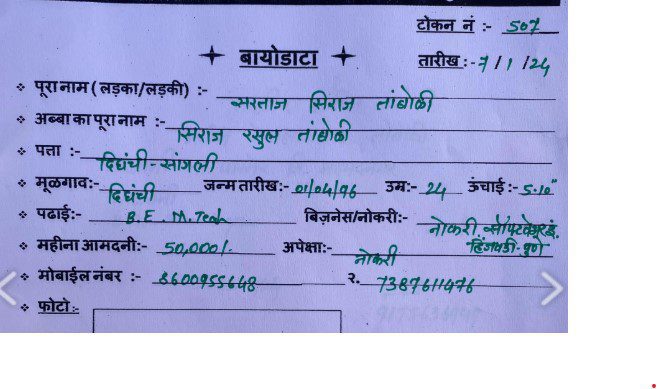 टोकन नं :- 507
बायोडाटा
तारीख :- 7/1/24
पूरा नाम (लड़का/लड़की) :- सरताज सिराज तांबोळी
अब्बा का पूरा नाम :- सिराज रसुल तांबोळी
पत्ता :- दिघंची-सांगली
मूळगाव:- दिघंची जन्म तारीख:- 01/04/96 उम्र:- 24 ऊंचाई:- 5.10"
पढाई:- B.E. M.Tech बिज़नेस/नोकरी:- नोकरी
हिंजवडी-पुणे
महीना आमदनी:- 50,000/- अपेक्षा:- नोकरी
मोबाईल नंबर :- 8600955648 २. 7387611476
फोटो:-